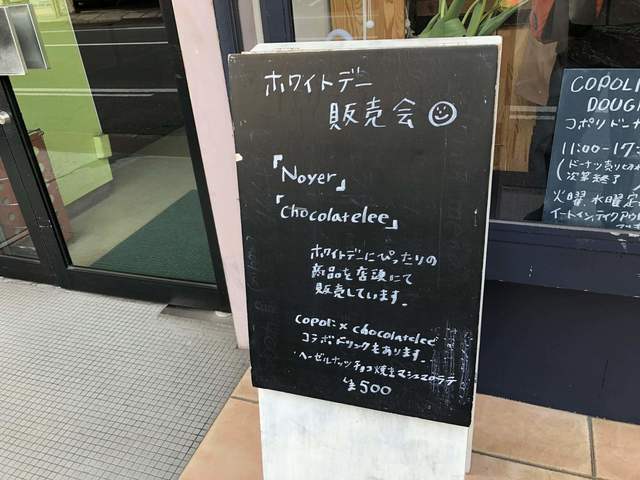 ホワイトデー
販売会
「Noyer」
「chocolatelee」
ホワイトデーにぴったりの
商品を店頭にて
販売しています。
copori × chocolatelee
コラボドリンクもあります。
・ヘーゼルナッツチョコ焼きマシュマロラテ
¥500
COPOLI
DOUG
コポリドーナ
11:00-17
(ドーナツ売り
次第終了
火曜、水曜
イートイン、テイクアウ